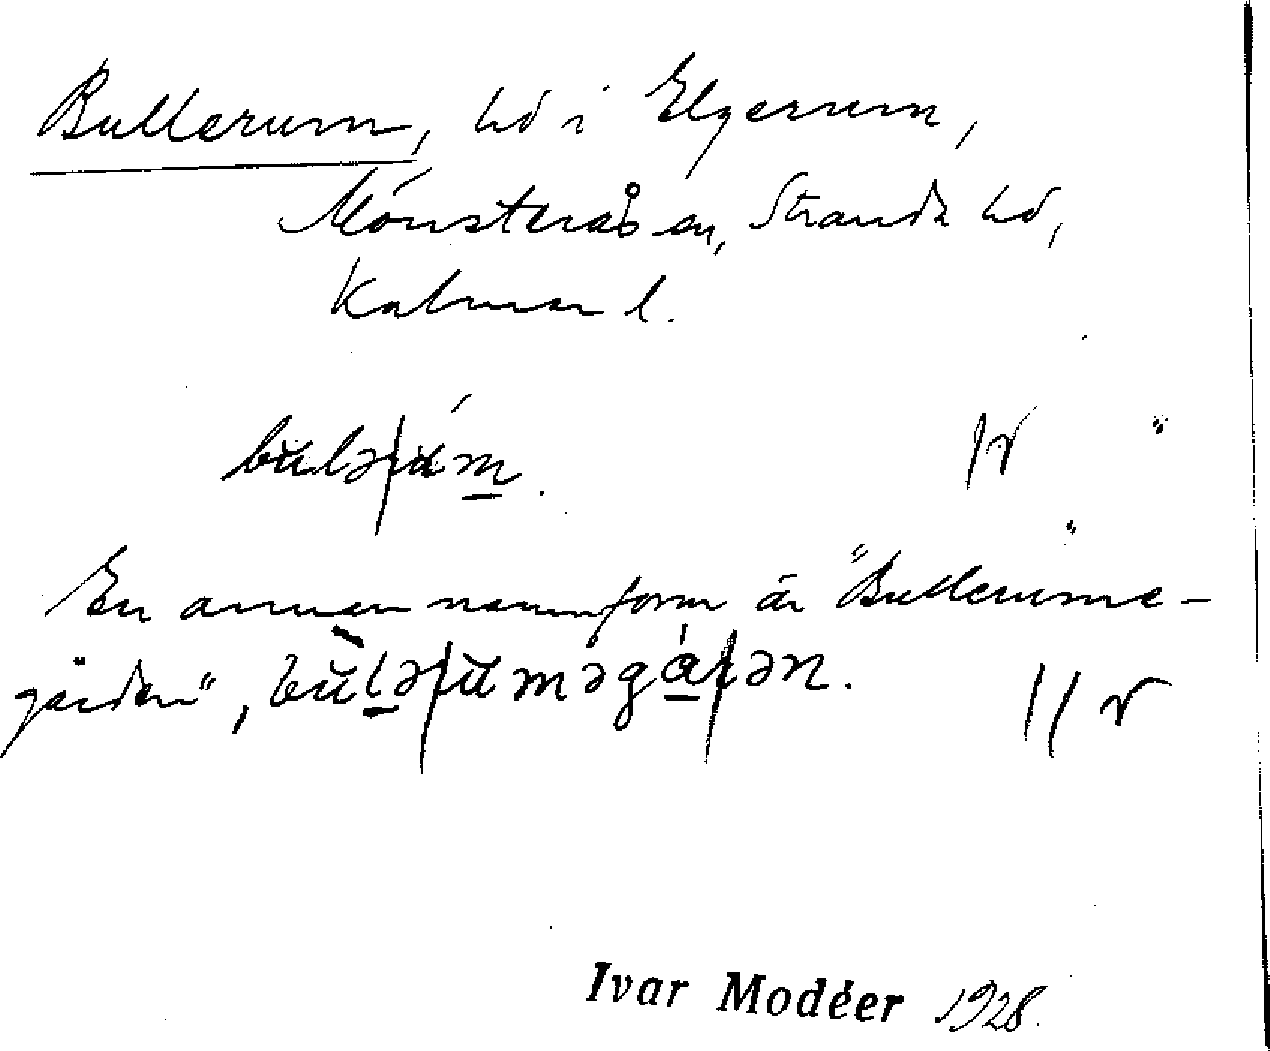 Bullerum, hd i Elgerum,
Mönsterås sn, Stranda hd,
Kalmar l.
En annan namnform är "Bullerume-
gården",
Ivar Modéer 1928.